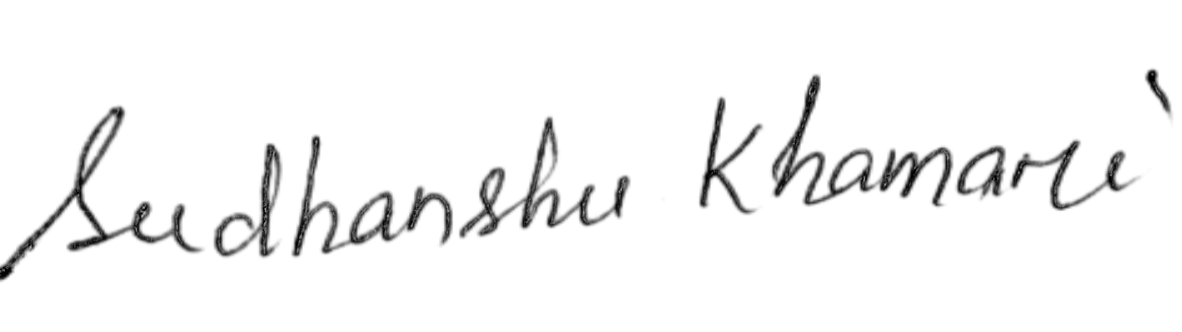 Sudhanshu Khamari